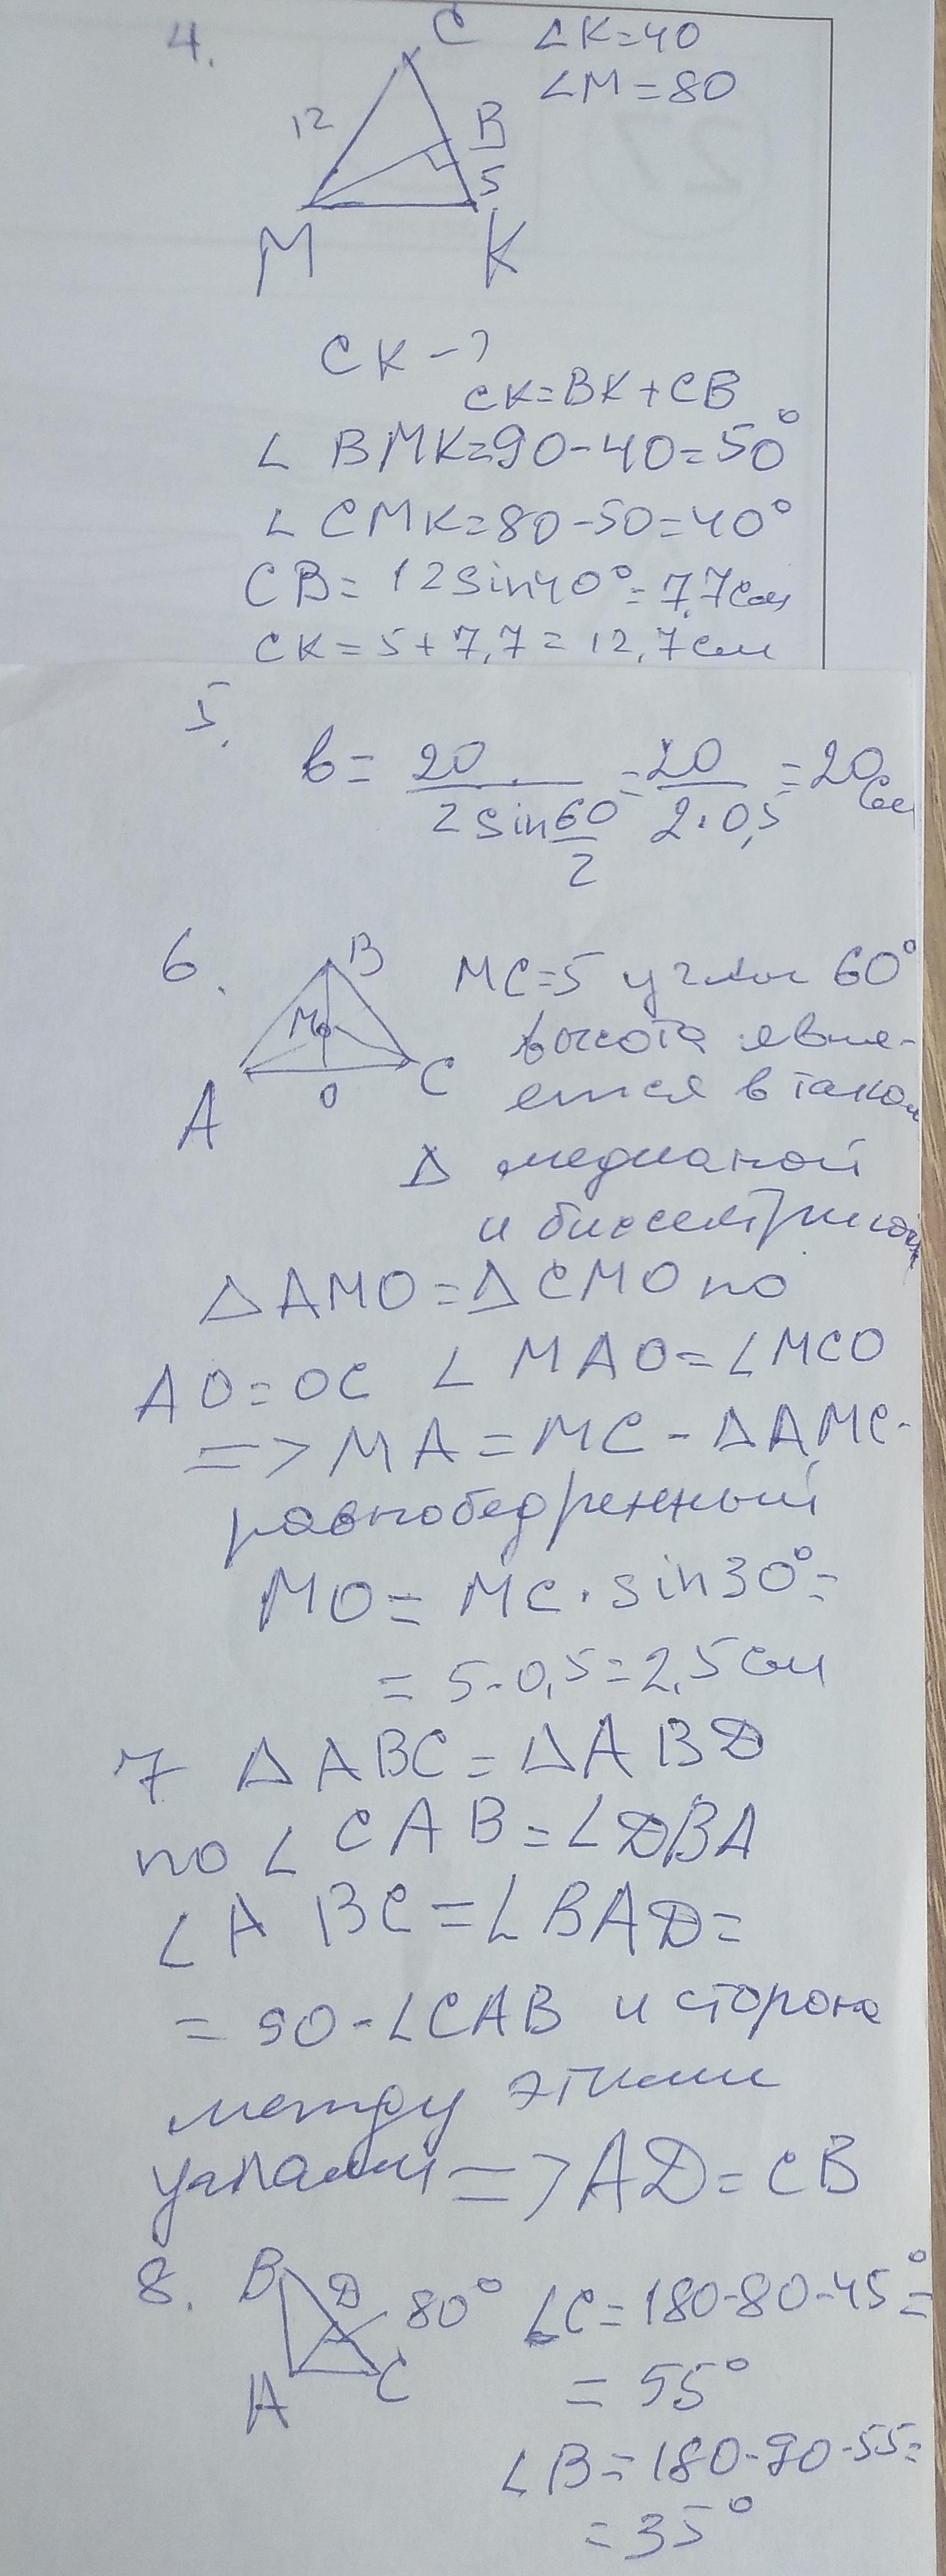 4.
C
∠K=40
∠M=80
12
B
5
M
K
CK-?
CK=BK+CB
∠ BMK=90-40=50°
∠ CMK=80-50=40°
CB= 12sin40°=7,7см
CK=5+7,7=12,7см
5.
b= 20/(2sin 60/2) = 20/(2·0,5) = 20см
6.
B
M
A
O
C
MC=5 углы 60°
высота явля-
ется в таком
Δ медианой
и биссектрисой
ΔAMO=ΔCMO по
AO=OC ∠MAO=∠MCO
=>MA=MC-ΔAMC-
равнобедренный
MO=MC·sin30°=
=5·0,5=2,5см
7 ΔABC=ΔABD
по ∠CAB=∠DBA
∠ABC=∠BAD=
=90-∠CAB и сторона
между этими
углами=>AD=CB
8.
B
D
80°
A
C
∠C=180-80-45°=
=55°
∠B=180-90-55=
=35°